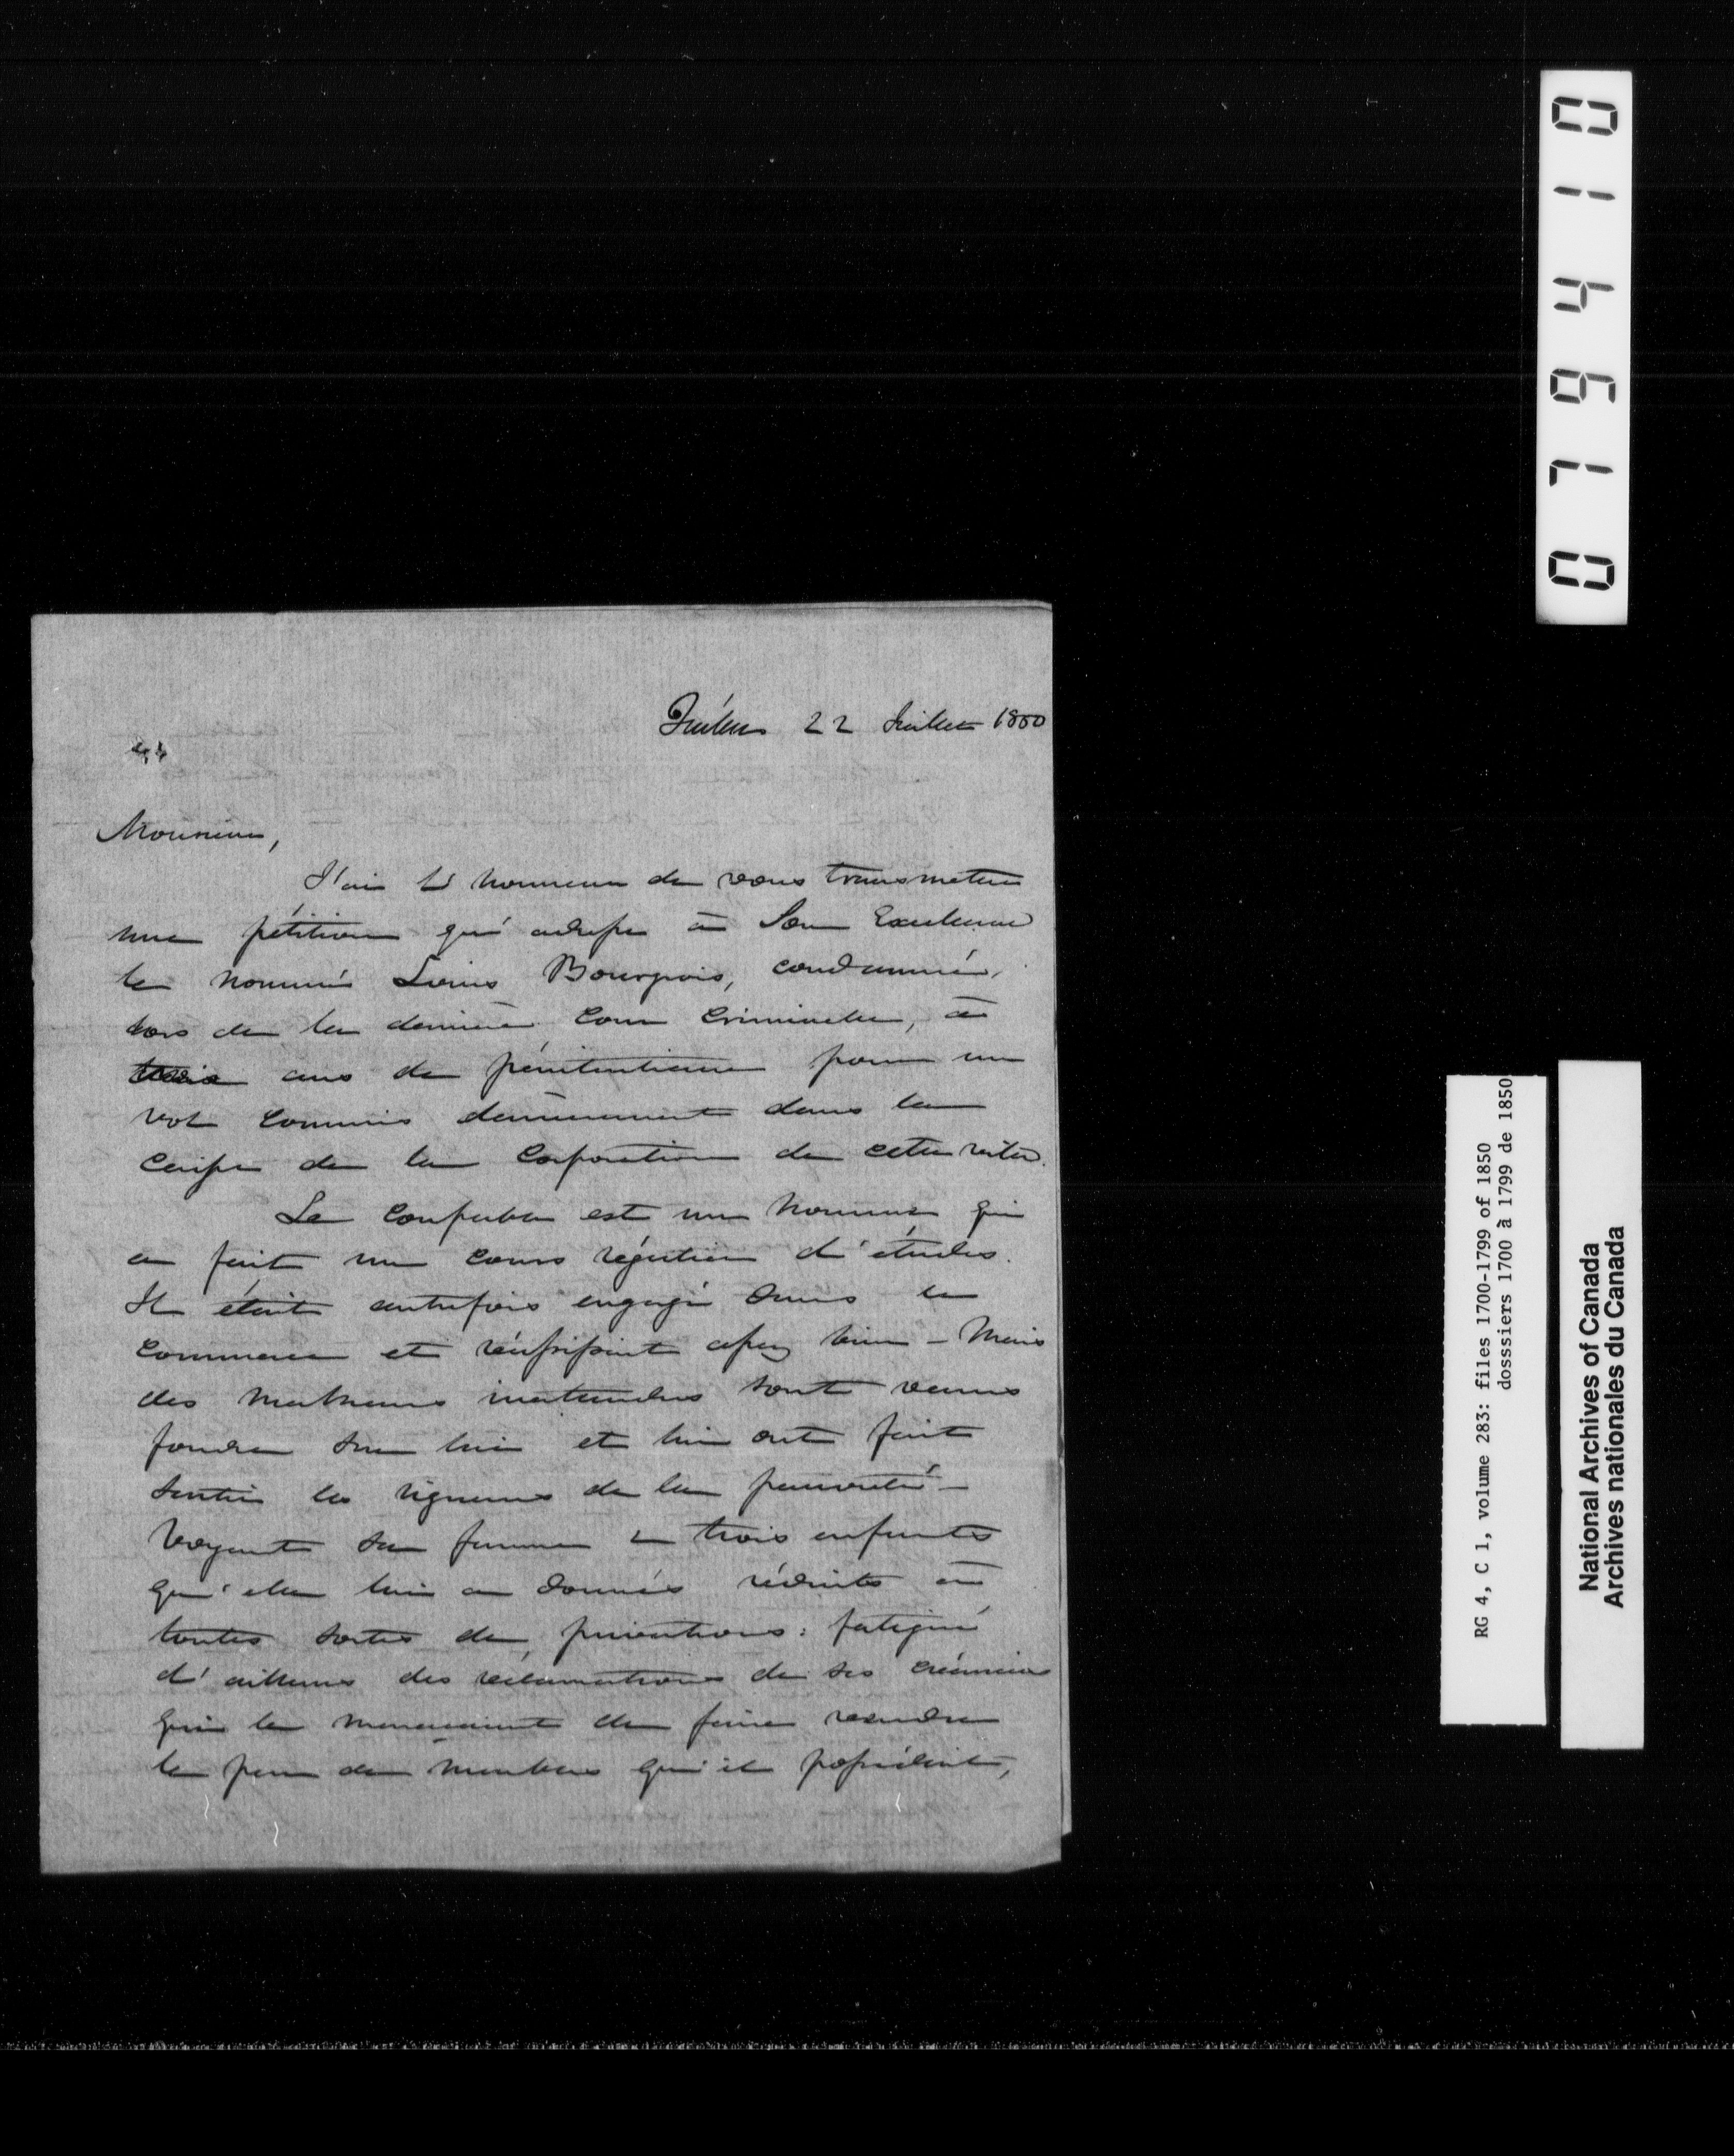 Québec 22 Juillet 1850
Monsieur,
J'ai l'honneur de vous transmettre
une pétition qu'adresse à Son Excellence
le nommé Louis Bourgeois, condamné,
lors de la dernière Cour Criminelle, à
trois ans de pénitentiaire pour un
vol commis dernièrement dans la
caisse de la Corporation de cette ville.
Le coupable est un homme qui
a fait un cours régulier d'études.
Il était autrefois engagé dans le
commerce et réussissait assez bien – Mais
des malheurs inattendus sont venus
fondre sur lui et lui ont fait
sentir les rigueurs de la pauvreté –
Voyant sa femme & trois enfants
qu'elle lui a donnés réduits à
toutes sortes de privations: fatigué
d'ailleurs des réclamations de ses créanciers
qui le menacaient de faire vendre
le peu de meubles qu'il possédait,
079410
RG 4, C 1, volume 283: files 1700-1799 of 1850
dosssiers 1700 à 1799 de 1850
National Archives of Canada
Archives nationales du Canada